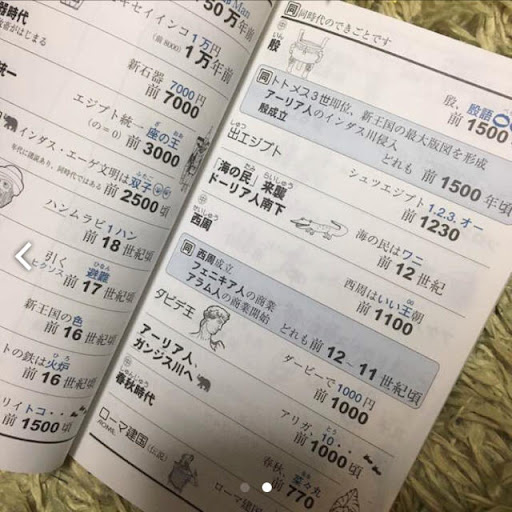 50万年前
キセイインコ1万円
(前8000) 1万年前
新石器 7000円
前7000
エジプト統一 座の王
(の=0) 前3000
インダス・エーゲ文明は双子
年代に諸説あり、同時代ではある 前2500頃
ハンムラビ1ハン
前18世紀頃
引く 避難
ヒクソス 前17世紀頃
新王国の色
前16世紀
トの鉄は火炉
前16世紀頃
リイトコ・・
前1500頃
同 同時代のできごとです
殷
殷、殷語
前1500
同 トトメス3世即位、新王国の最大版図を形成
アーリア人のインダス川侵入
殷成立 どれも 前1500年頃
出エジプト
シュツエジプト1.2.3.オー
前1230
「海の民」来襲
ドーリア人南下
海の民はワニ
前12世紀
西周
西周はいい王朝
前1100
同 西周成立
フェニキア人の商業
アラム人の商業開始 どれも 前12〜11世紀頃
ダビデ王
ダービーで1000円
前1000
アーリア人、
ガンジス川へ
アリガ、10・・
前1000頃
春秋時代
春秋、菜々丸
前770
ローマ建国(伝説)
ROME
ローマ建国